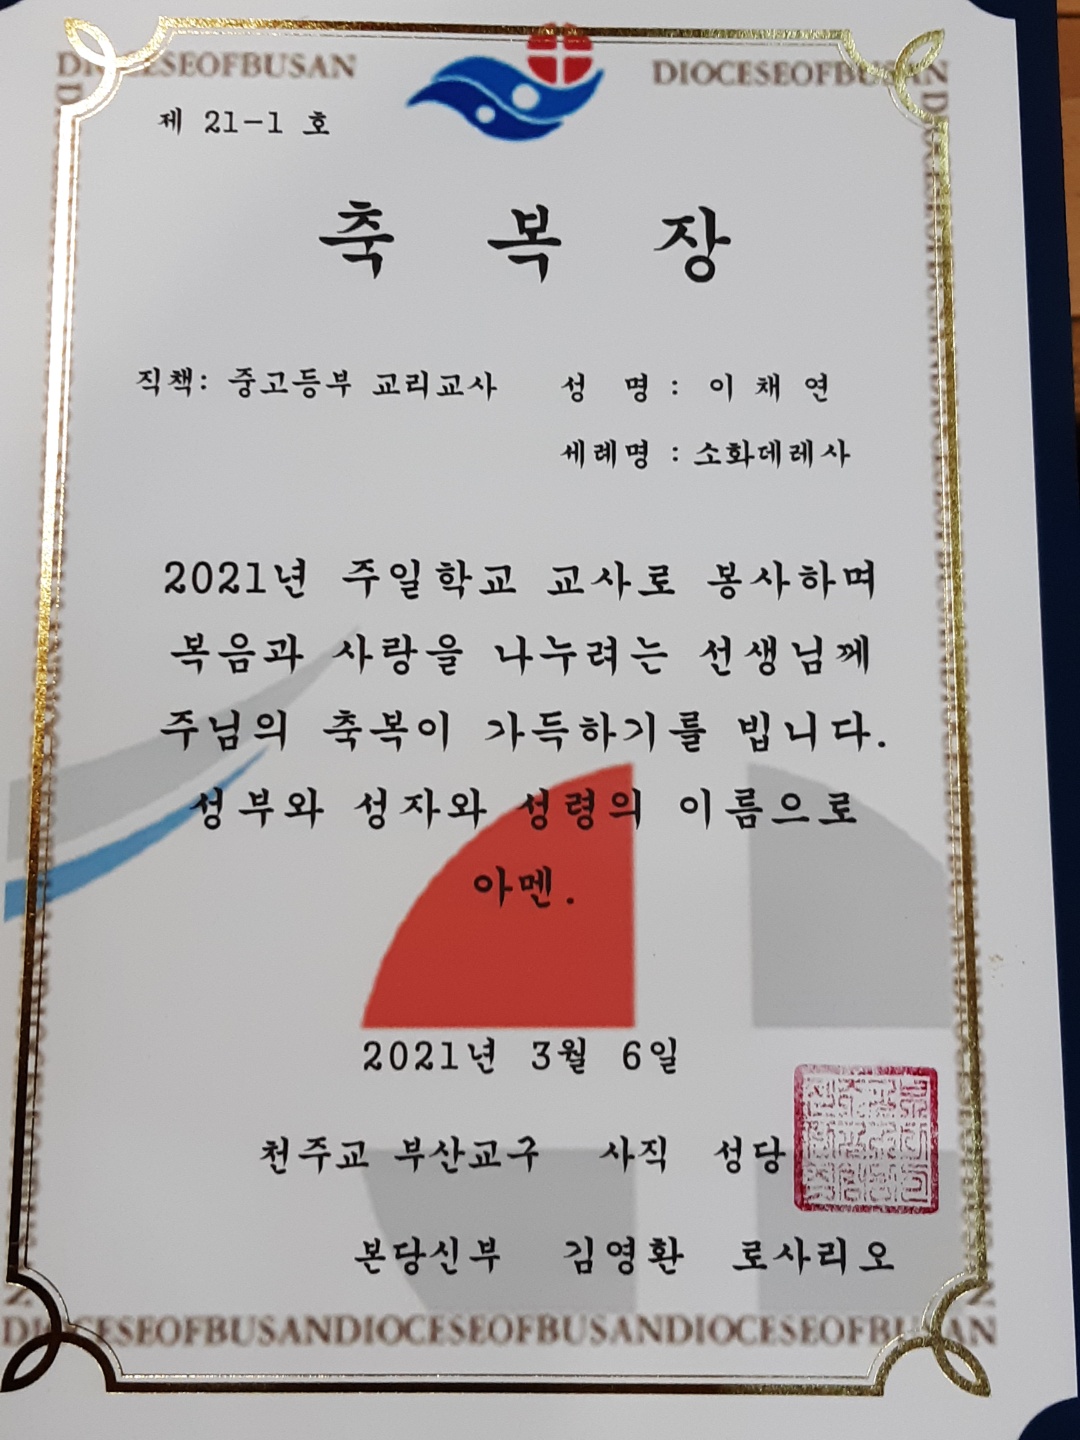 DIOCESEOFBUSAN DIOCESEOFBUSAN
제 21-1 호
축 복 장
직책: 중고등부 교리교사 성 명 : 이 채 연
세례명 : 소화데레사
2021년 주일학교 교사로 봉사하며
복음과 사랑을 나누려는 선생님께
주님의 축복이 가득하기를 빕니다.
성부와 성자와 성령의 이름으로
아멘.
2021년 3월 6일
천주교 부산교구 사직 성당
본당신부 김영환 로사리오
DIOCESEOFBUSANDIOCESEOFBUSANDIOCESEOFBUSAN